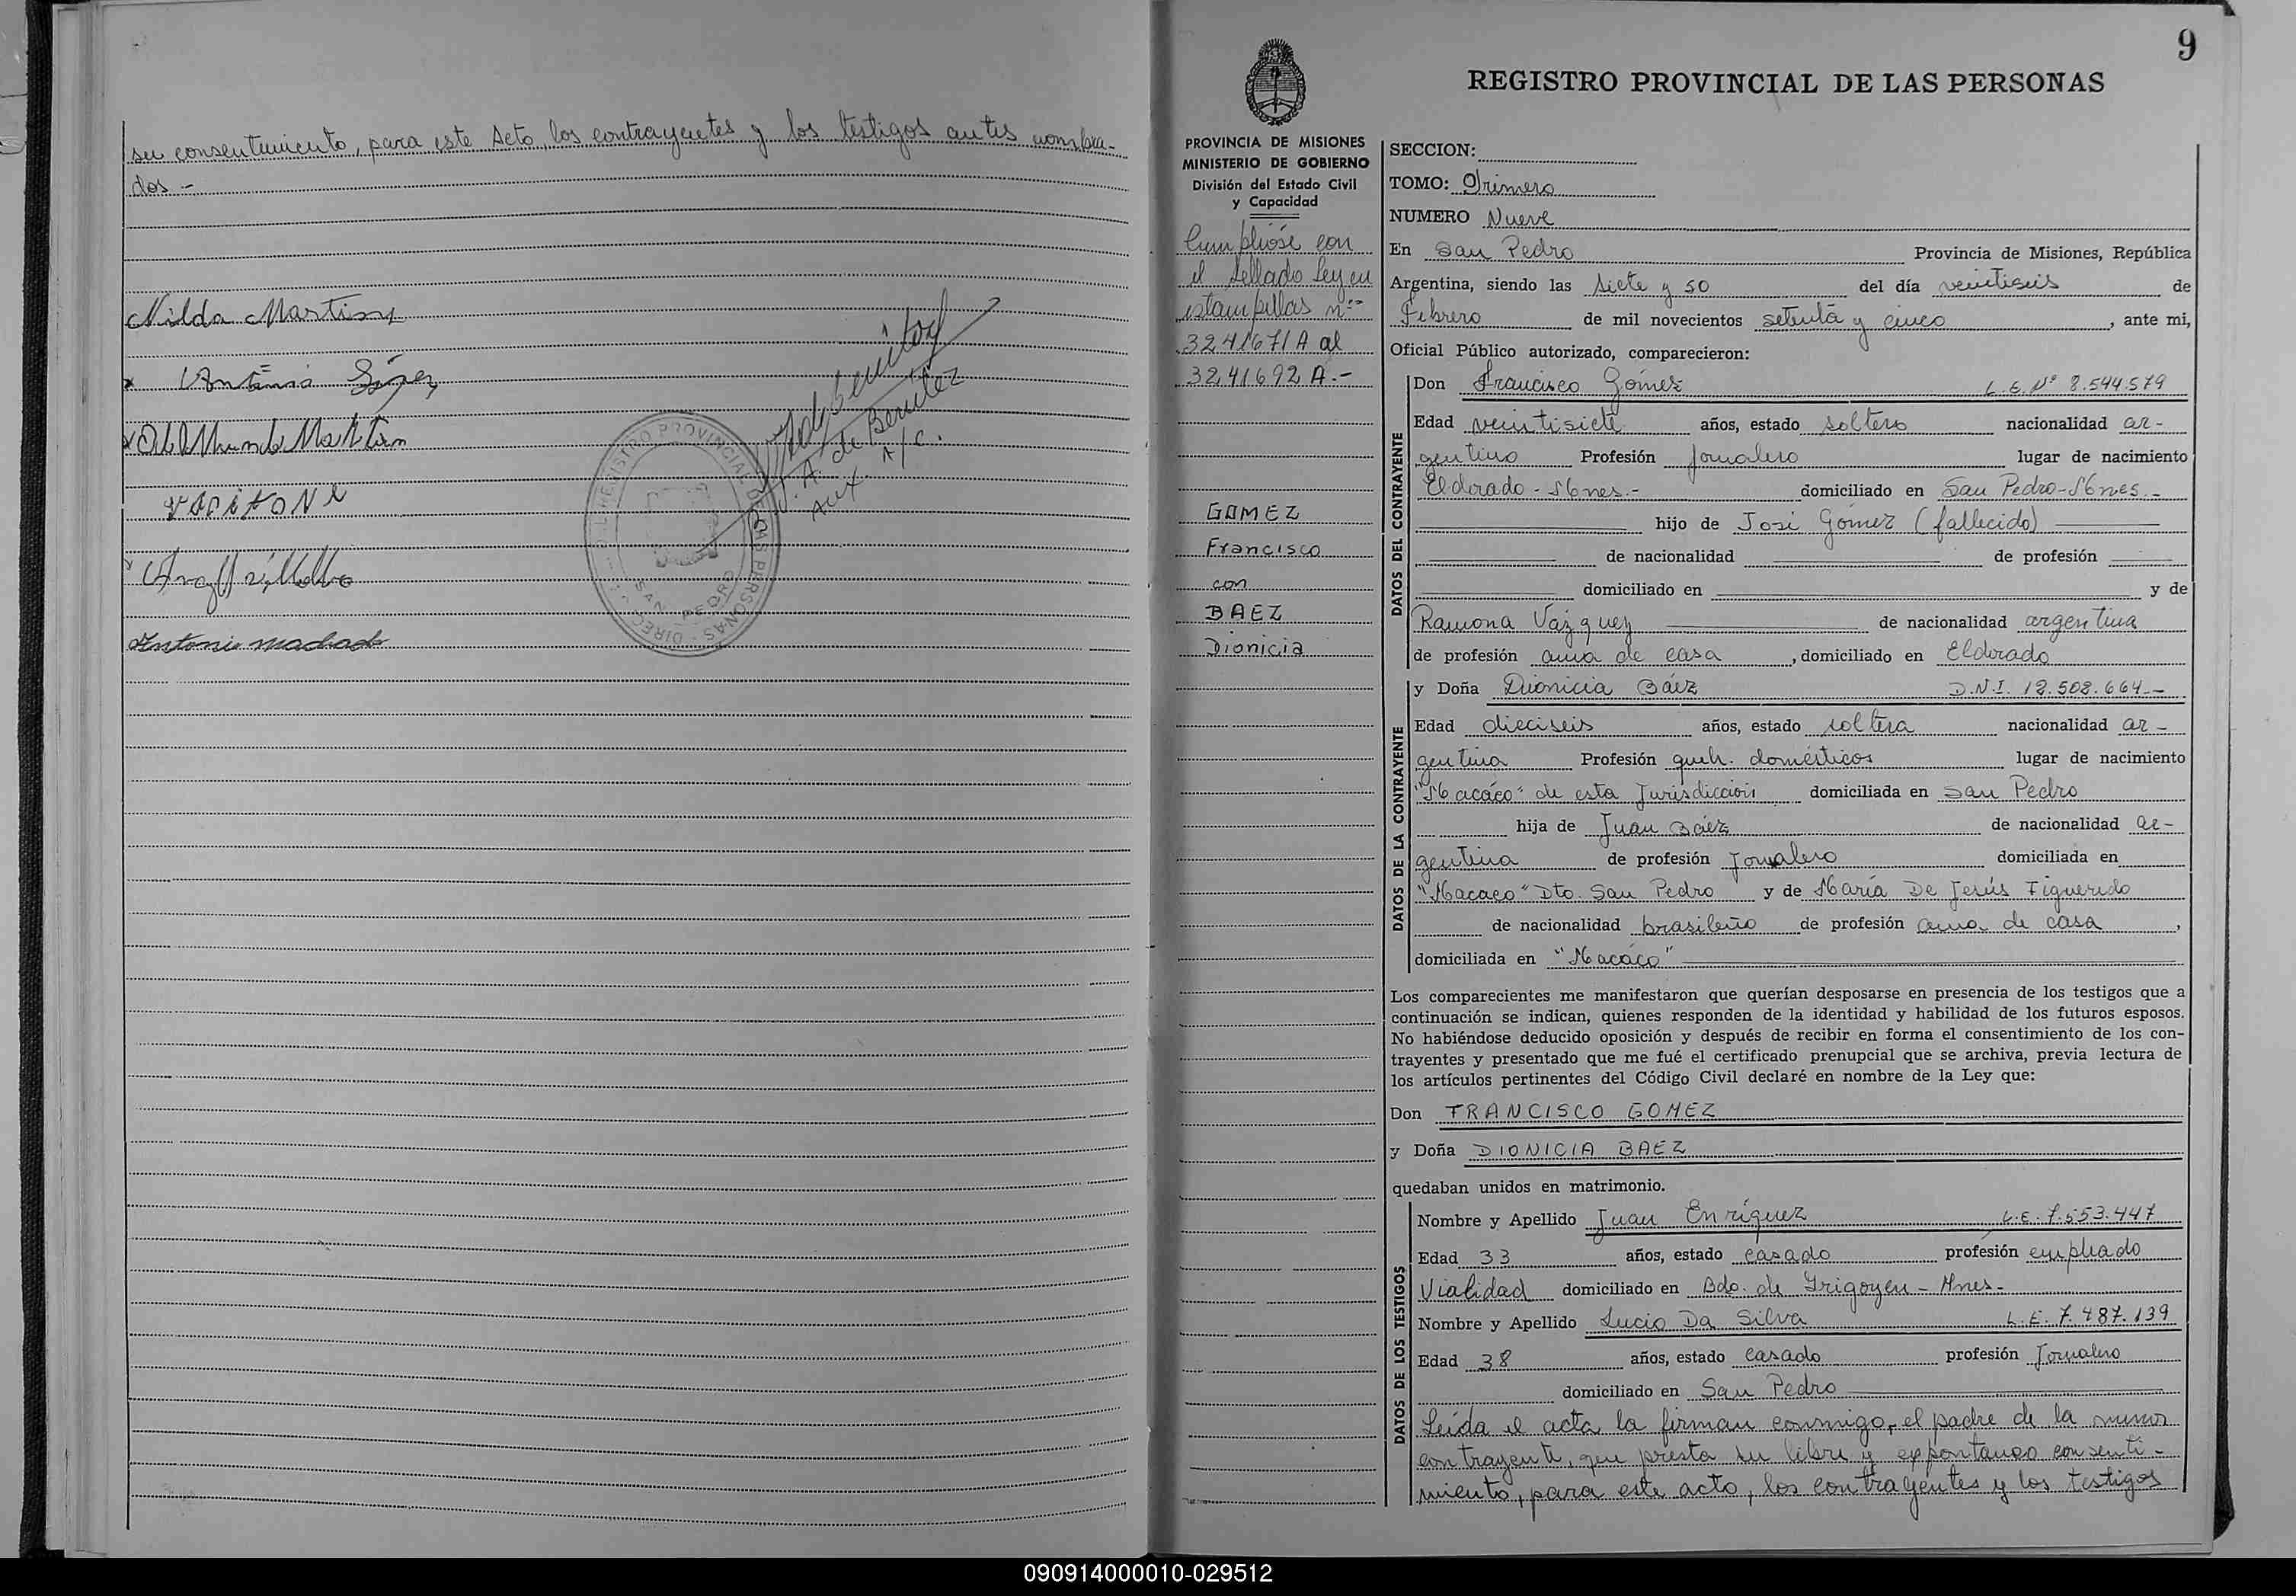 su consentimiento, para este Acto, los contrayentes y los testigos antes nombra-
dos -
Nilda Martins
x Antonio López
x
x
x
Antonio machado
A. de Benitez
Aux. A/C.
DIREC. DEL REGISTRO PROVINCIAL DE LAS PERSONAS
SAN PEDRO
9
REGISTRO PROVINCIAL DE LAS PERSONAS
PROVINCIA DE MISIONES
MINISTERIO DE GOBIERNO
División del Estado Civil
y Capacidad
Cumplióse con
el sellado Ley en
estampillas nº
3241671A al
3241692 A.-
GOMEZ
Francisco
con
BAEZ
Dionicia
SECCION:
TOMO: Primero
NUMERO Nueve
En San Pedro Provincia de Misiones, República
Argentina, siendo las siete y 50 del día veintiseis de
Febrero de mil novecientos setenta y cinco, ante mi,
Oficial Público autorizado, comparecieron:
DATOS DEL CONTRAYENTE
Don Francisco Gómez L.E. Nº 8.544.579
Edad veintisiete años, estado soltero nacionalidad ar-
gentino Profesión Jornalero lugar de nacimiento
Eldorado - Mnes.- domiciliado en San Pedro-Mnes.-
hijo de José Gómez (fallecido)
de nacionalidad de profesión
domiciliado en y de
Ramona Vázquez de nacionalidad argentina
de profesión ama de casa, domiciliado en Eldorado
DATOS DE LA CONTRAYENTE
y Doña Dionicia Báez D.N.I. 12.502.664.-
Edad dieciseis años, estado soltera nacionalidad ar-
gentina Profesión queh. domésticos lugar de nacimiento
"Macaco" de esta Jurisdicción domiciliada en San Pedro
hija de Juan Báez de nacionalidad ar-
gentina de profesión Jornalero domiciliada en
"Macaco" Dto. San Pedro y de María De Jesús Figueredo
de nacionalidad brasileño de profesión ama de casa,
domiciliada en "Macaco"
Los comparecientes me manifestaron que querían desposarse en presencia de los testigos que a
continuación se indican, quienes responden de la identidad y habilidad de los futuros esposos.
No habiéndose deducido oposición y después de recibir en forma el consentimiento de los con-
trayentes y presentado que me fué el certificado prenupcial que se archiva, previa lectura de
los artículos pertinentes del Código Civil declaré en nombre de la Ley que:
Don FRANCISCO GOMEZ
y Doña DIONICIA BAEZ
quedaban unidos en matrimonio.
DATOS DE LOS TESTIGOS
Nombre y Apellido Juan Enríquez L.E. 7.553.447
Edad 33 años, estado casado profesión empleado
Vialidad domiciliado en Bdo. de Irigoyen - Mnes-
Nombre y Apellido Lucio Da Silva L.E. 7.487.139
Edad 38 años, estado casado profesión Jornalero
domiciliado en San Pedro
Leída el acta la firman conmigo, el padre de la menor
contrayente, que presta su libre y expontaneo consenti-
miento, para este acto, los contrayentes y los testigos
090914000010-029512